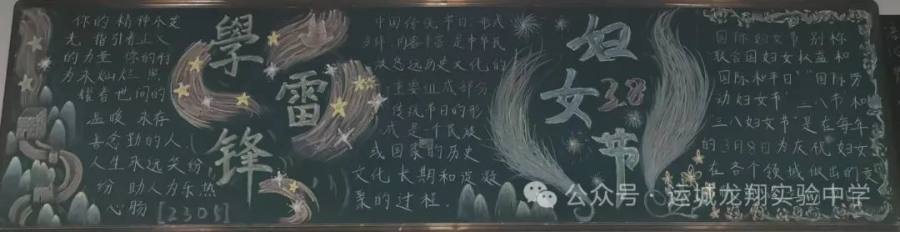 你的精神永是
光 指引着世人
的力量 你的行
为永灿烂 照
耀着世间的
温暖 永存
善念勤的人
人生永远笑纷
纷 助人为乐热
心肠 [2305]
學雷锋
中国传统节日,形式
多样,内容丰富,是中华民
族悠远历史文化的
重要组成部分
传统节日的形
成是一个民族
或国家的历史
文化长期积淀凝
聚的过程.
妇女节
38
国际妇女节 别称
联合国妇女权益和
国际和平日"国际劳
动妇女节" 三八节和
三八妇女节 是在每年
的3月8日为庆祝妇女
在各个领域做出的贡
公众号·运城龙翔实验中学